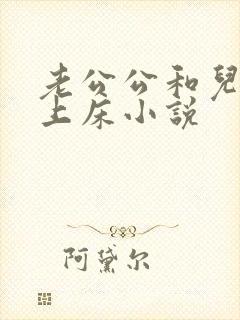 老公公和兒
上床小説
阿黛尔